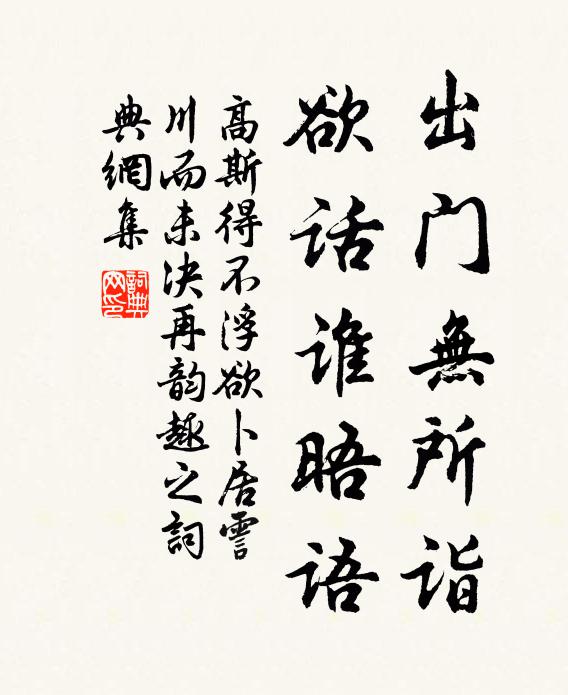 出门無所诣
欲话谁晤语
高斯得不浮欲卜居霅
川而未决再韵趣之詞
典網集
詞典網印